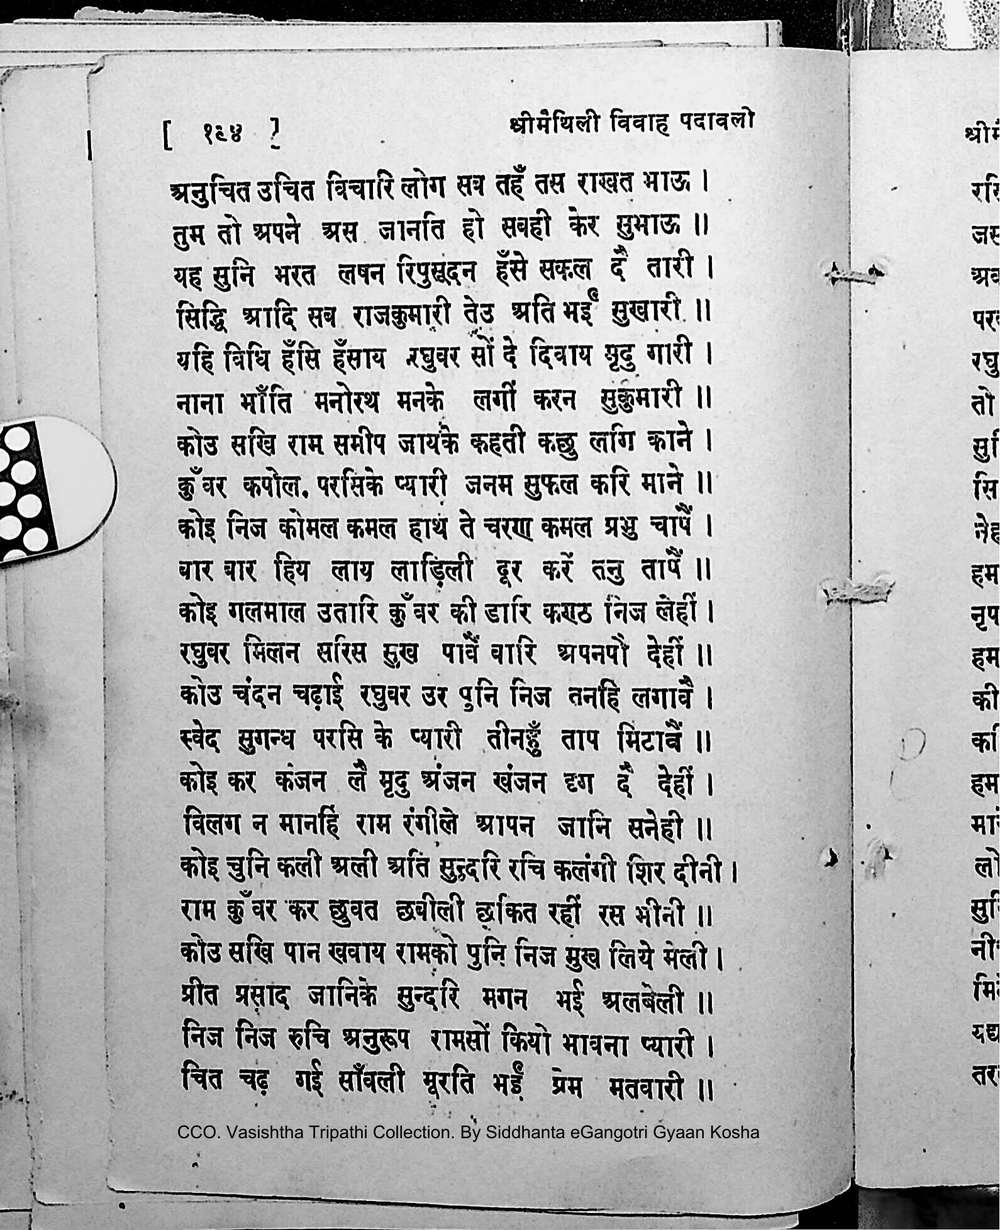 [ १६४ ]
श्रीमैथिली विवाह पदावली
अनुचित उचित विचारि लोग सब तहँ तस राखत भाऊ ।
तुम तो अपने अस जानति हो सबही केर सुभाऊ ॥
यह सुनि भरत लषन रिपुसूदन हँसे सकल दै तारी ।
सिद्धि आदि सब राजकुमारी तेउ अति भईं सुखारी ॥
यहि विधि हँसि हँसाय रघुवर सों दे दिवाय मृदु गारी ।
नाना भाँति मनोरथ मनके लगीं करन सुकुमारी ॥
कोउ सखि राम समीप जायकै कहती कछु लगि काने ।
कुँवर कपोल. परसिके प्यारी जनम सुफल करि माने ॥
कोइ निज कोमल कमल हाथ ते चरण कमल प्रभु चापैं ।
बार बार हिय लाय लाड़िली दूर करें तनु तापैं ॥
कोइ गलमाल उतारि कुँवर की डारि कण्ठ निज लेहीं ।
रघुवर मिलन सरिस सुख पावैं वारि अपनपौ देहीं ॥
कोउ चंदन चढ़ाई रघुवर उर पुनि निज तनहि लगावै ।
स्वेद सुगन्ध परसि के प्यारी तीनहुँ ताप मिटावैं ॥
कोइ कर कंजन लै मृदु अंजन खंजन दृग दै देहीं ।
विलग न मानहिं राम रंगीले आपन जानि सनेही ॥
कोइ चुनि कली अली अति सुन्दरि रचि कलंगी शिर दीनी ।
राम कुँवर कर छुवत छबीली छकित रहीं रस भीनी ॥
कोउ सखि पान खवाय रामको पुनि निज मुख लिये मेली ।
प्रीत प्रसाद जानिके सुन्दरि मगन भई अलबेली ॥
निज निज रुचि अनुरूप रामसों कियो भावना प्यारी ।
चित चढ़ गई साँवली मूरति भईं प्रेम मतवारी ॥
CCO. Vasishtha Tripathi Collection. By Siddhanta eGangotri Gyaan Kosha